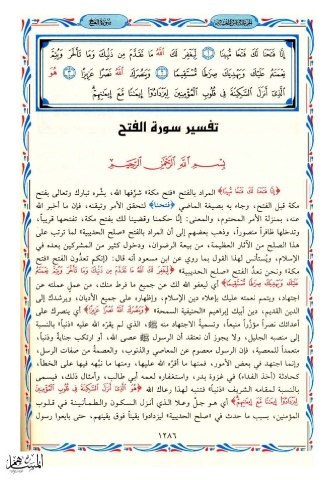 سورة الفتح
إِنَّا فَتَحْنَا لَكَ فَتْحًا مُّبِينًا ۝١ لِّيَغْفِرَ لَكَ اللَّهُ مَا تَقَدَّمَ مِن ذَنبِكَ وَمَا تَأَخَّرَ وَيُتِمَّ
نِعْمَتَهُ عَلَيْكَ وَيَهْدِيَكَ صِرَاطًا مُّسْتَقِيمًا ۝٢ وَيَنصُرَكَ اللَّهُ نَصْرًا عَزِيزًا ۝٣ هُوَ
الَّذِي أَنزَلَ السَّكِينَةَ فِي قُلُوبِ الْمُؤْمِنِينَ لِيَزْدَادُوا إِيمَانًا مَّعَ إِيمَانِهِمْ
تفسير سورة الفتح
بِسْمِ اللَّهِ الرَّحْمَنِ الرَّحِيمِ
﴿إِنَّا فَتَحْنَا لَكَ فَتْحًا مُّبِينًا﴾ المراد بالفتح «فتح مكة» شرَّفها الله، بشَّره تبارك وتعالى بفتح
مكة قبل الفتح، وجاء به بصيغة الماضي ﴿فتحنا﴾ لتحقق الأمر وتيقنه، فإن ما أخبر الله
عنه، بمنزلة الأمر المحتوم، والمعنى: إنَّا حكمنا وقضينا لك بفتح مكة، تفتحها قريباً،
وتدخلها ظافراً منصوراً، وذهب بعضهم إلى أن المراد بالفتح «صلح الحديبية» لما ترتب على
هذا الصلح من الآثار العظيمة، من بيعة الرضوان، ودخول كثير من المشركين بعده في
الإسلام، ويُستأنس لهذا القول بما روي عن ابن مسعود أنه قال: (إنكم تعدُّون الفتح «فتح
مكة» ونحن نعدُّ الفتح «صلح الحديبية» ﴿لِّيَغْفِرَ لَكَ اللَّهُ مَا تَقَدَّمَ مِن ذَنبِكَ وَمَا تَأَخَّرَ وَيُتِمَّ نِعْمَتَهُ
عَلَيْكَ وَيَهْدِيَكَ صِرَاطًا مُّسْتَقِيمًا﴾ أي ليغفر الله لك عن جميع ما فرط منك، من عملٍ عملته عن
اجتهاد، ويتمم نعمته عليك بإعلاء دين الإسلام، وإظهاره على جميع الأديان، ويرشدك إلى
الدين القويم، دين أبيك إبراهيم «الحنيفية السمحة» ﴿وَيَنصُرَكَ اللَّهُ نَصْرًا عَزِيزًا﴾ أي ينصرك على
أعدائك نصراً مؤزَّراً منيعاً، وتسميةُ الاجتهاد منه ﷺ، الذي لم يقرَّه الله عليه «ذنباً» بالنسبة
إلى منصبه الجليل، ولا يجوز أن نعتقد أن الرسول ﷺ عصى الله، أو ارتكب جنايةً وذنباً،
متعمداً للمعصية، فإن الرسول معصوم عن المعاصي والذنوب، والعصمةُ من صفات الرسل،
وإنما اجتهد في بعض الأمور، فمنها ما أقرَّه الله عليها، ومنها ما نبَّهه فيها على الخطأ،
كحادثة (أخذ الفداء) في غزوة بدر، واستغفاره لعمه أبي طالب، وأمثال ذلك، فيسمى
بالنسبة لمقامه الشريف «ذنباً» فتنبه لهذا رعاك الله ﴿هُوَ الَّذِي أَنزَلَ السَّكِينَةَ فِي قُلُوبِ الْمُؤْمِنِينَ
لِيَزْدَادُوا إِيمَانًا مَّعَ إِيمَانِهِمْ﴾ أي هو جلَّ وعلا الذي أنزل السكون والطمأنينة في قلوب
المؤمنين، بسبب ما حدث في «صلح الحديبية» ليزدادوا يقيناً فوق يقينهم، حتى بايعوا رسول
١٢٨٦